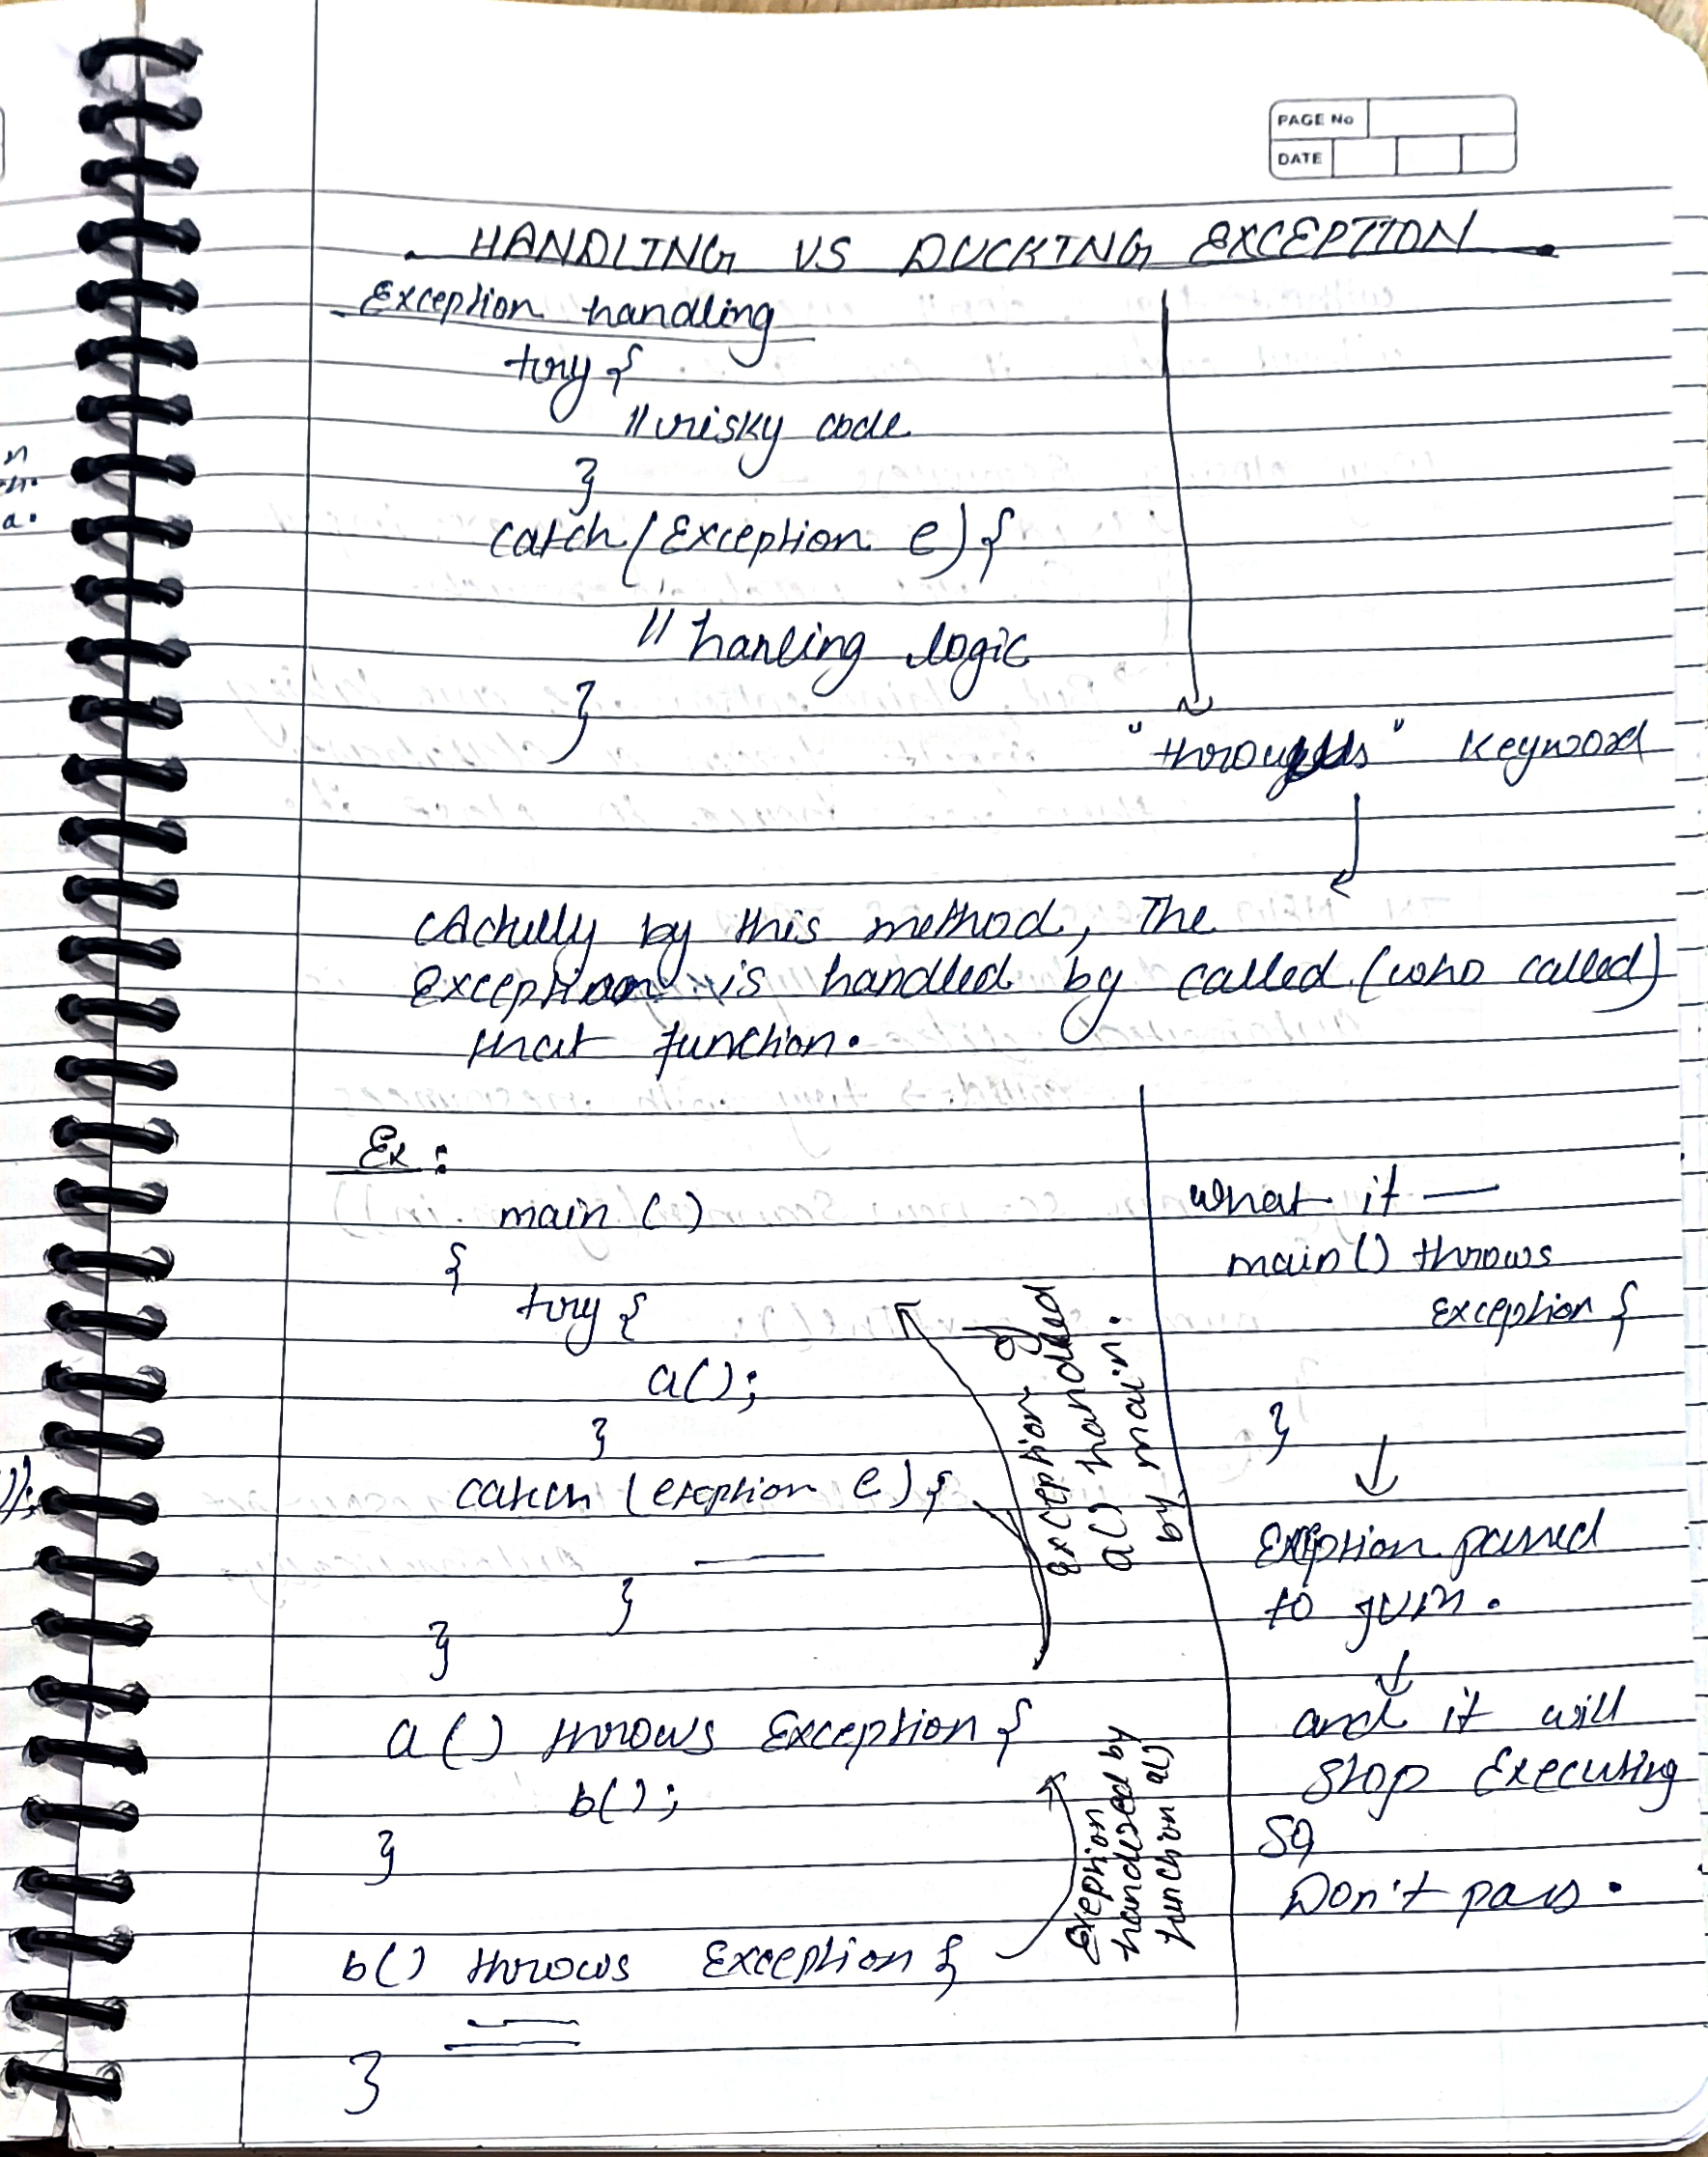 PAGE No
DATE
HANDLING VS DUCKING EXCEPTION
Exception handling
try {
// risky code
}
catch (Exception e) {
// hanling logic
}
" throughs " keyword
Actully by this method, The
exception is handled by called (who called)
that function.
Ex :
main ( )
{
try {
a();
}
catch (exeption e) {
}
}
a () throws Exception {
b();
}
b() throws Exception {
}
exception of
a() handled
by main.
Exeption
handled by
function a()
what if —
main() throws
exception {
}
Exeption passed
to JVM.
and it will
stop Executing
So,
Don't pass.